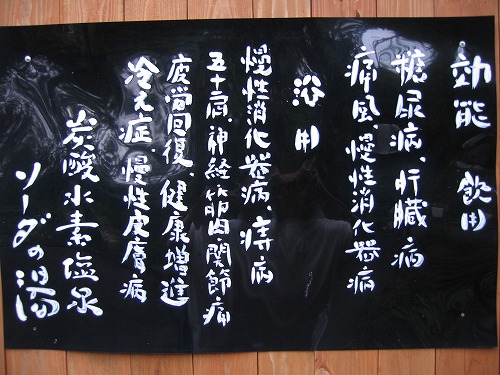 効能 飲用
糖尿病、肝臓病
痛風、慢性消化器病
浴用
慢性消化器病、痔病
五十肩、神経筋肉関節痛
疲労回復、健康増進
冷え症 慢性皮膚病
炭酸水素塩泉
ソーダの湯